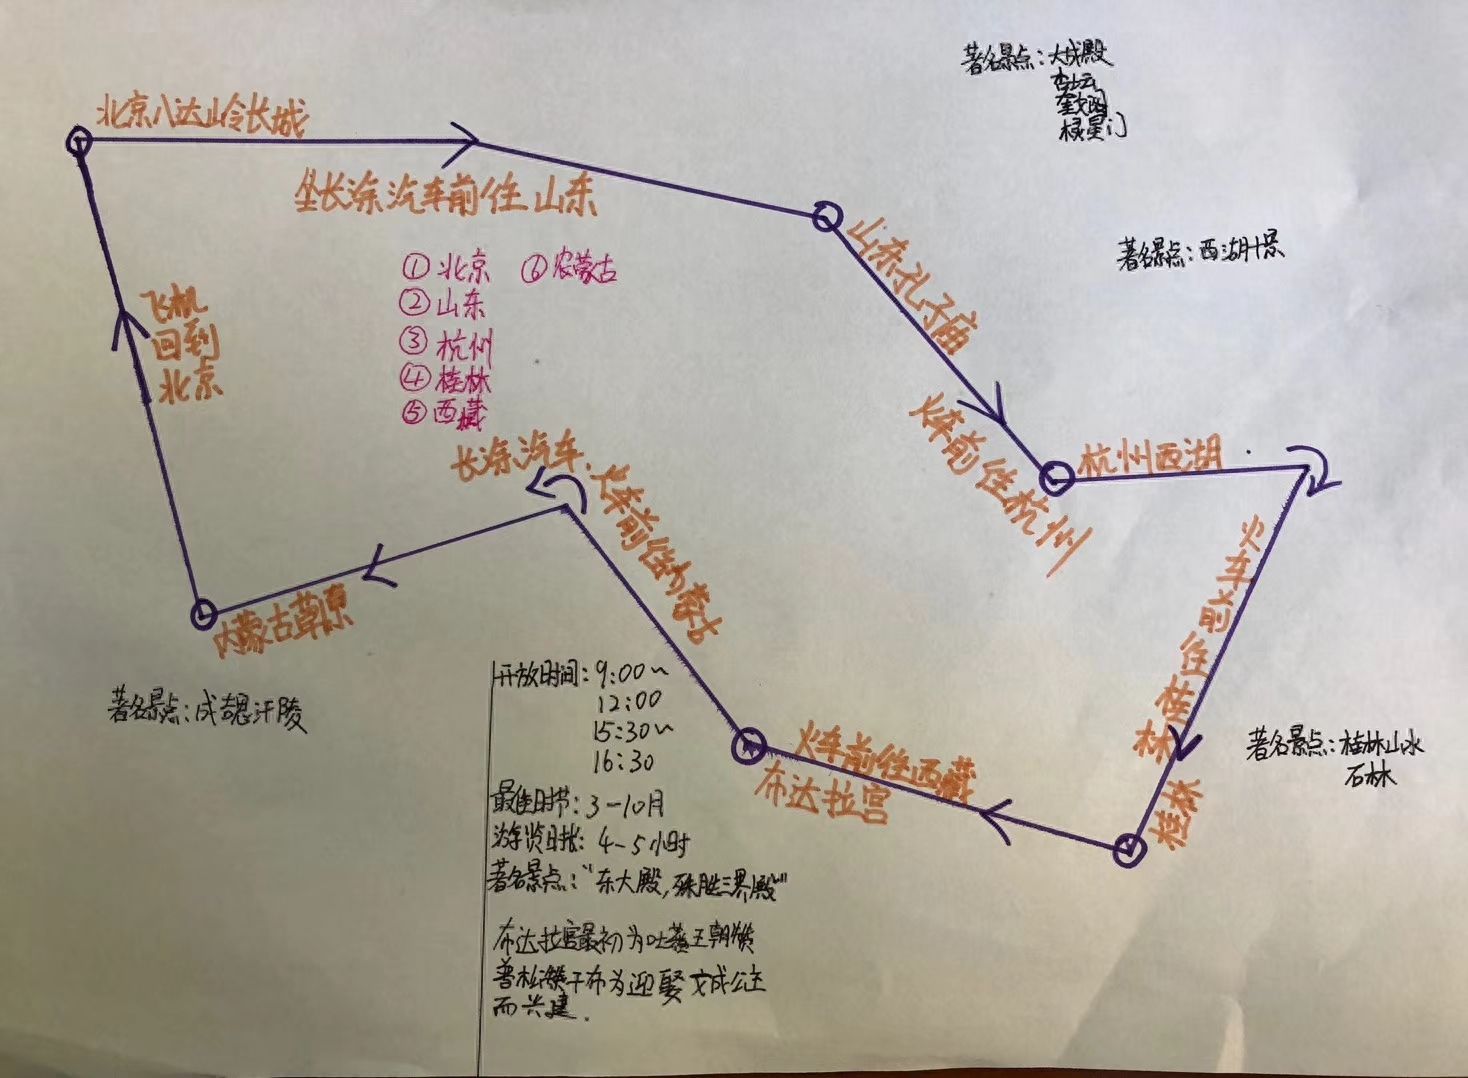 著名景点：大成殿
杏坛
奎文阁
棂星门
北京八达岭长城
坐长途汽车前往山东
山东孔子庙
著名景点：西湖十景
①北京 ⑥内蒙古
②山东
③杭州
④桂林
⑤西藏
飞机
回到
北京
火车前往杭州
杭州西湖
长途汽车、火车前往内蒙古
火车前往桂林
内蒙古草原
著名景点：成吉思汗陵
桂林
著名景点：桂林山水
石林
火车前往西藏
布达拉宫
开放时间：9:00~
12:00
15:30~
16:30
最佳时节：3-10月
游览时长：4-5小时
著名景点：“东大殿，殊胜三界殿”
布达拉宫最初为吐蕃王朝赞
普松赞干布为迎娶文成公主
而兴建.